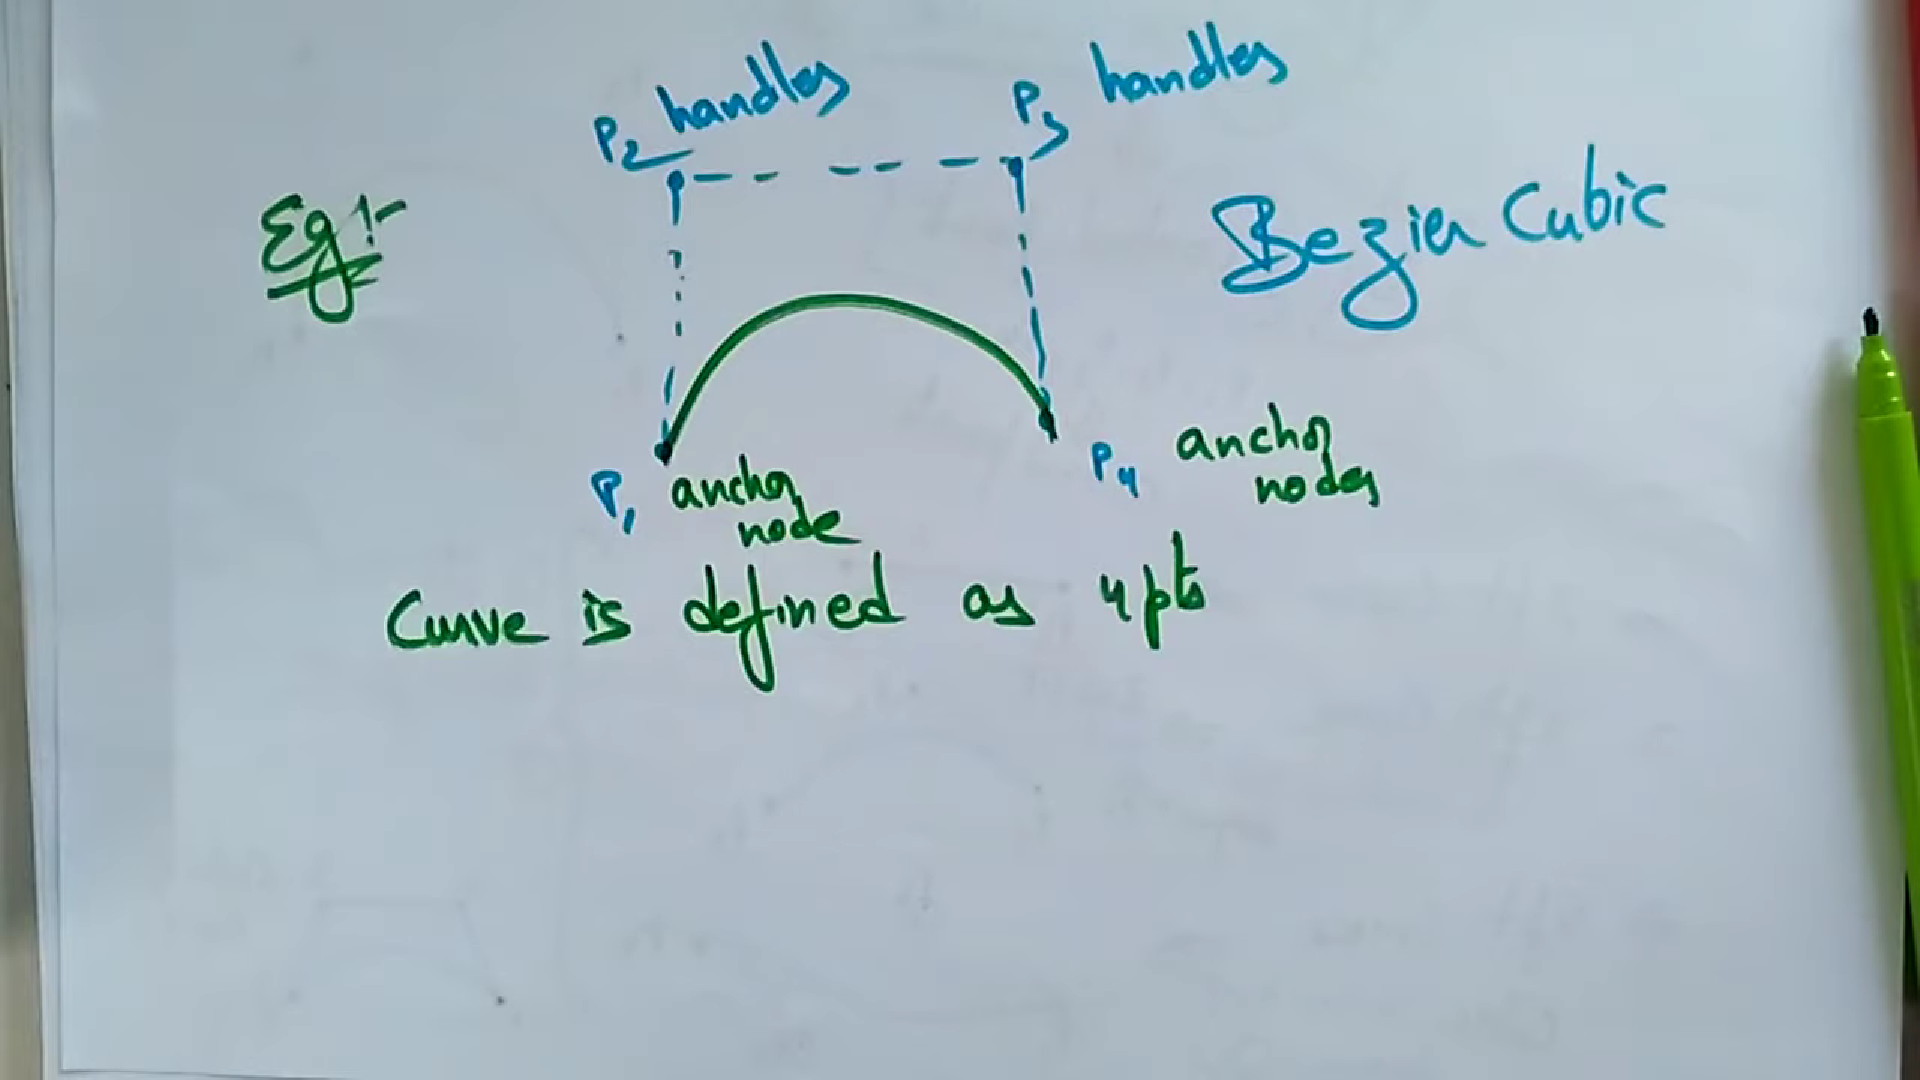 P2 handles
P3 handles
Eg:-
Bezier Cubic
P1 anchor node
P4 anchor nodes
Curve is defined as 4 pts